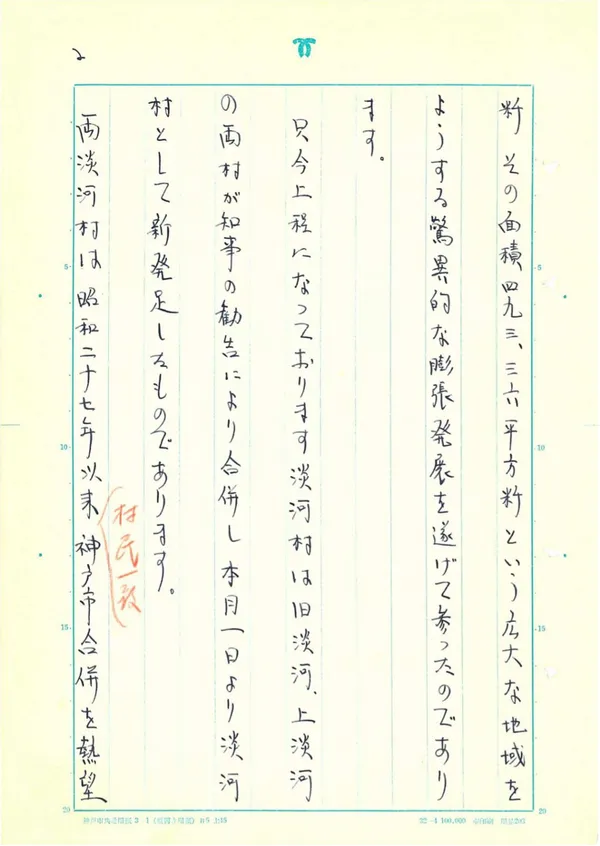 2
粁 その面積四九三、三六平方粁という広大な地域を
ようする驚異的な膨張発展を遂げて参ったのであり
ます。
只今上程になっております淡河村は旧淡河、上淡河
の両村が知事の勧告により合併し 本月一日より淡河
村として新発足したものであります。
村民一致
両淡河村は昭和二十七年以来 神戸市合併を熱望
5
10
15
20
5
10
15
20